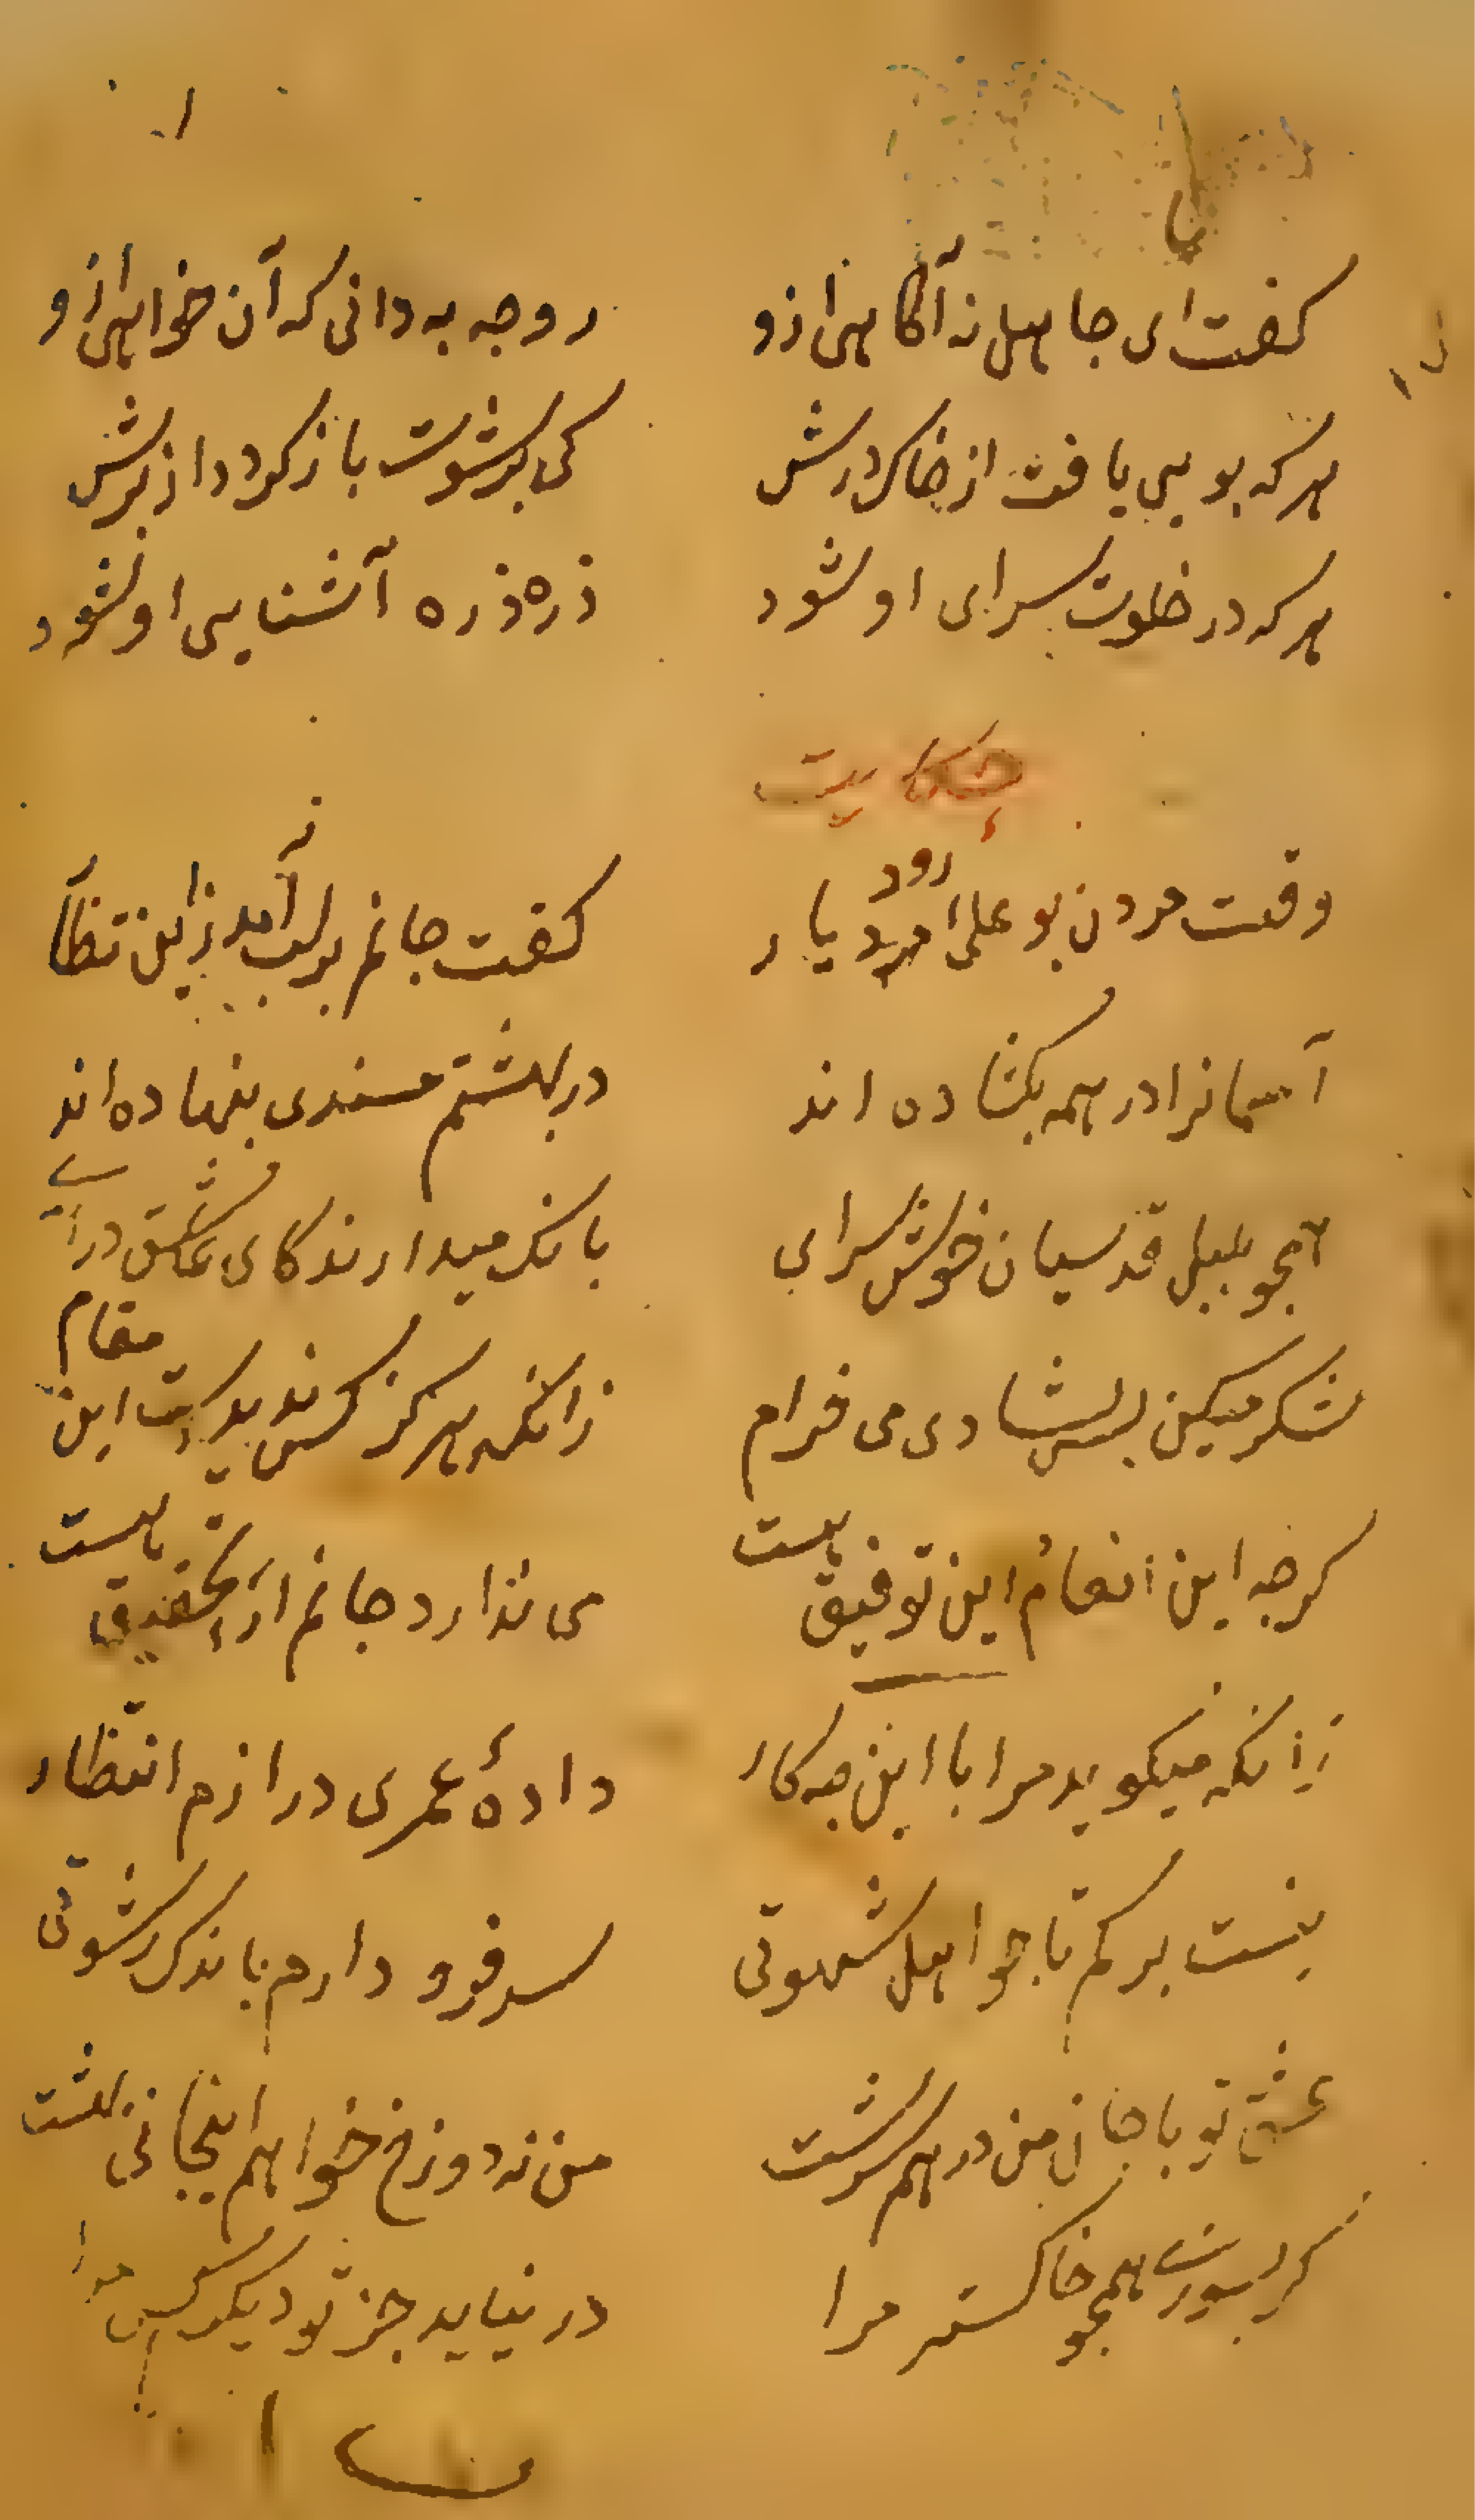 کفت ای جاهل نه آکاهی ازو
رو چه به دانی که آن خواهی ازو
هر که بویی یافت از خاک درش
کی برشوت باز کردد از برش
هر که در خلوت سرای او شود
ذره ذره آشنایی او شود
حکایت
وقت مردن بو علی رودیار
کفت جانم بر لب آمد زین انتظار
آسمانرا در همه بکشاده اند
در بهشتم مسندی بنهاده اند
همچو بلبل قدسیان خوش سرای
بانک میدارند کای عاشق درای
شکر میکن پس بشادی می خرام
زانکه هرکز کس ندیدست این مقام
کرچه این انعام این توفیق هست
می ندارد جانم از تحقیق دست
زانکه میکوید مرا با این چه کار
دادهٔ عمری درازم انتظار
نیست برکم تا چو اهل شهوتی
سر فرود آرم باندک رشوتی
عشق تو با جان من در هم سرشت
من نه دوزخ خواهم اینجا نی بهشت
کر بسوزی همچو خاکستر مرا
در نیاید جز تو دیکر کس مرا